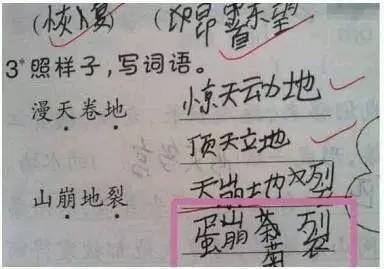 (恢复) (昂首东望)
3*照样子,写词语。
漫天卷地 惊天动地
顶天立地
山崩地裂 天崩地裂
蛋崩菊裂
菊